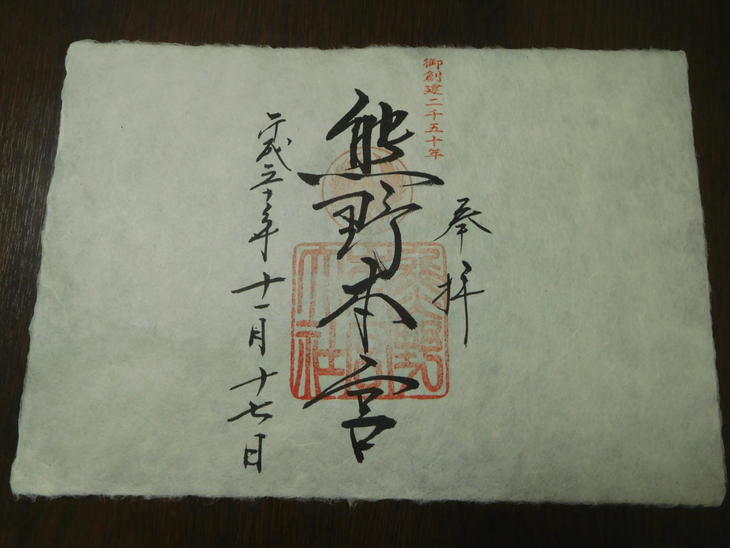 御創建二千五十年
奉拝
熊野本宮
熊野本宮大社
平成三十年十一月十七日